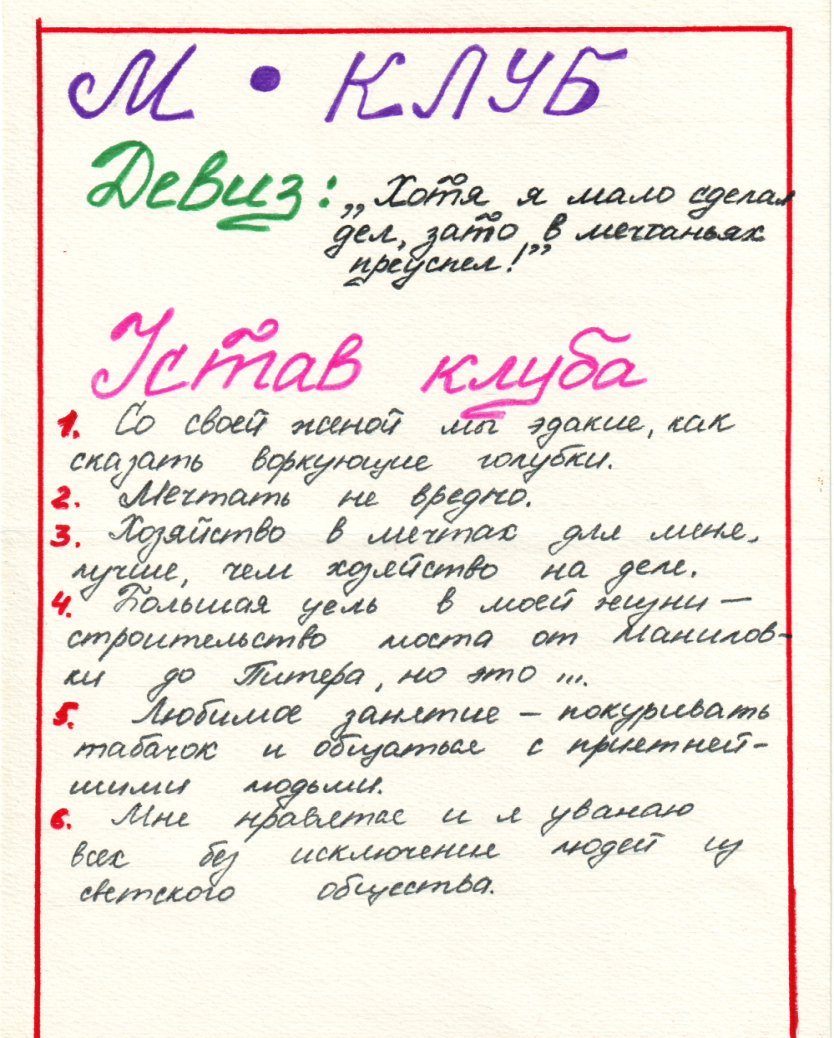 М • КЛУБ
Девиз: „Хотя я мало сделал
дел, зато в мечтаньях
преуспел!”
Устав клуба
1. Со своей женой мы эдакие, как
сказать воркующие голубки.
2. Мечтать не вредно.
3. Хозяйство в мечтах для меня,
лучше, чем хозяйство на деле.
4. Большая цель в моей жизни —
строительство моста от Манилов-
ки до Питера, но это ...
5. Любимое занятие — покуривать
табачок и общаться с приятней-
шими людьми.
6. Мне нравятся и я уважаю
всех без исключения людей из
светского общества.